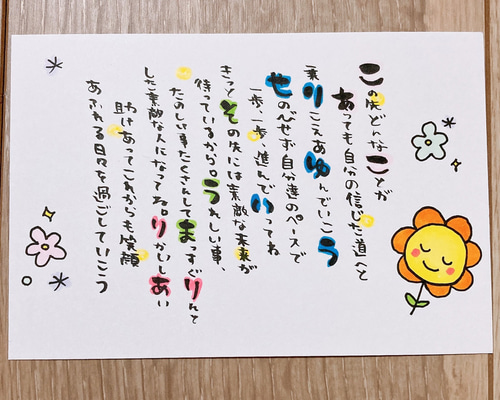 この先どんなことが
あっても自分の信じた道へと
乗りこえあゆんでいこう
せのびせず自分達のペースで
一歩、一歩、進んでいってね
きっとその先には素敵な未来が
待っているから。うれしい事、
たのしい事たくさんしてまっすぐりんと
した素敵な人になってね。りかいしあい
助けあってこれからも笑顔
あふれる日々を過ごしていこう